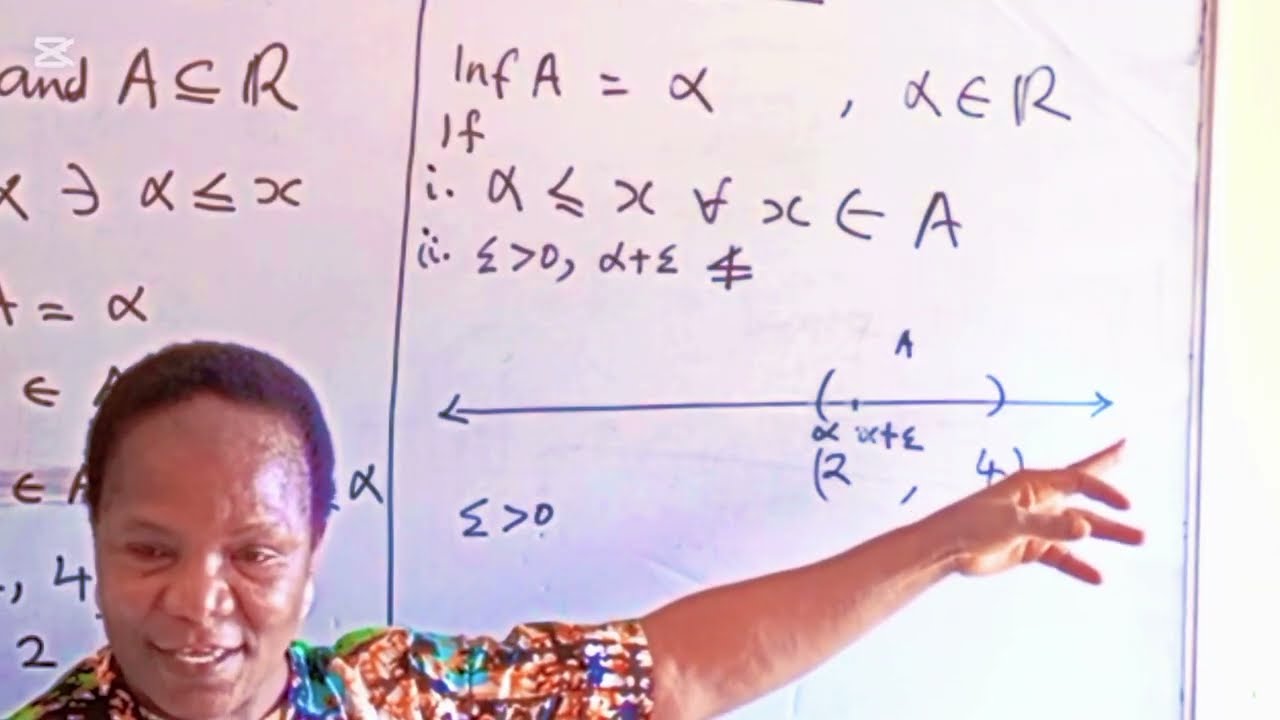 and A ⊆ ℝ
α ∋ α ≤ x
A = α
∈ A
∈ A α
, 4
2
Inf A = α , α ∈ ℝ
If
i. α ≤ x ∀ x ∈ A
ii. Σ > 0, α+Σ ≰
A
α α+Σ
(2 , 4)
Σ > 0